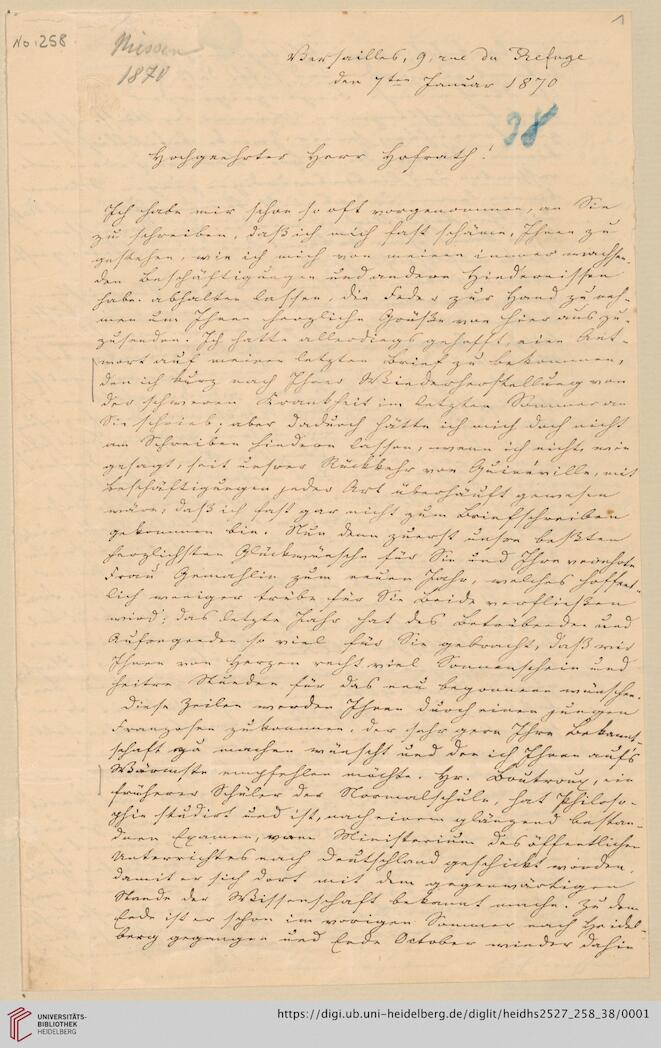 1
No. 258
Niessen
1870
Versailles, 9, rue du Refuge
den 7ten Januar 1870
38
Hochgeehrter Herr Hofrath!
Ich habe mir schon so oft vorgenommen, an Sie
zu schreiben, daß ich mich fast schäme, Ihnen zu
gestehen, wie ich mich von meinen immer wachsen-
den Beschäftigungen und andern Hindernissen
habe abhalten lassen, die Feder zur Hand zu neh-
men um Ihnen herzliche Grüße von hier aus zu-
zusenden. Ich hatte allerdings gehofft, eine Ant-
wort auf meinen letzten Brief zu bekommen,
den ich kurz nach Ihrer Wiederherstellung von
der schweren Krankheit im letzten Sommer an
Sie schrieb; aber dadurch hätte ich mich doch nicht
am Schreiben hindern lassen, wenn ich nicht, wie
gesagt, seit unsrer Rückkehr von, mit
Beschäftigungen jeder Art überhäuft gewesen
wäre, daß ich fast gar nicht zum Briefschreiben
gekommen bin. Nun denn zuerst unsre besten
herzlichsten Glückwünsche für Sie und Ihre verehrte
Frau Gemahlin zum neuen Jahr, welches hoffent-
lich weniger trübe für Sie Beide verfließen
wird; das letzte Jahr hat des Betrübenden und
Aufregenden so viel für Sie gebracht, daß wir
Ihnen von Herzen recht viel Sonnenschein und
heitre Stunden für das neu begonnene wünschen.
Diese Zeilen werden Ihnen durch einen jungen
Franzosen zukommen, der sehr gern Ihre Bekannt-
schaft zu machen wünscht und den ich Ihnen aufs
Wärmste empfehlen möchte. Hr. Boutroux, ein
früherer Schüler der Normalschule, hat Philoso-
phie studirt und ist, nach einem glänzend bestan-
dnen Examen, vom Ministerium des öffentlichen
Unterrichtes nach Deutschland geschickt worden,
damit er sich dort mit dem gegenwärtigen
Stande der Wissenschaft bekannt mache. Zu dem
Ende ist er schon im vorigen Sommer nach Heidel-
berg gegangen und Ende October wieder dahin
UNIVERSITÄTS-
BIBLIOTHEK
HEIDELBERG
https://digi.ub.uni-heidelberg.de/diglit/heidhs2527_258_38/0001